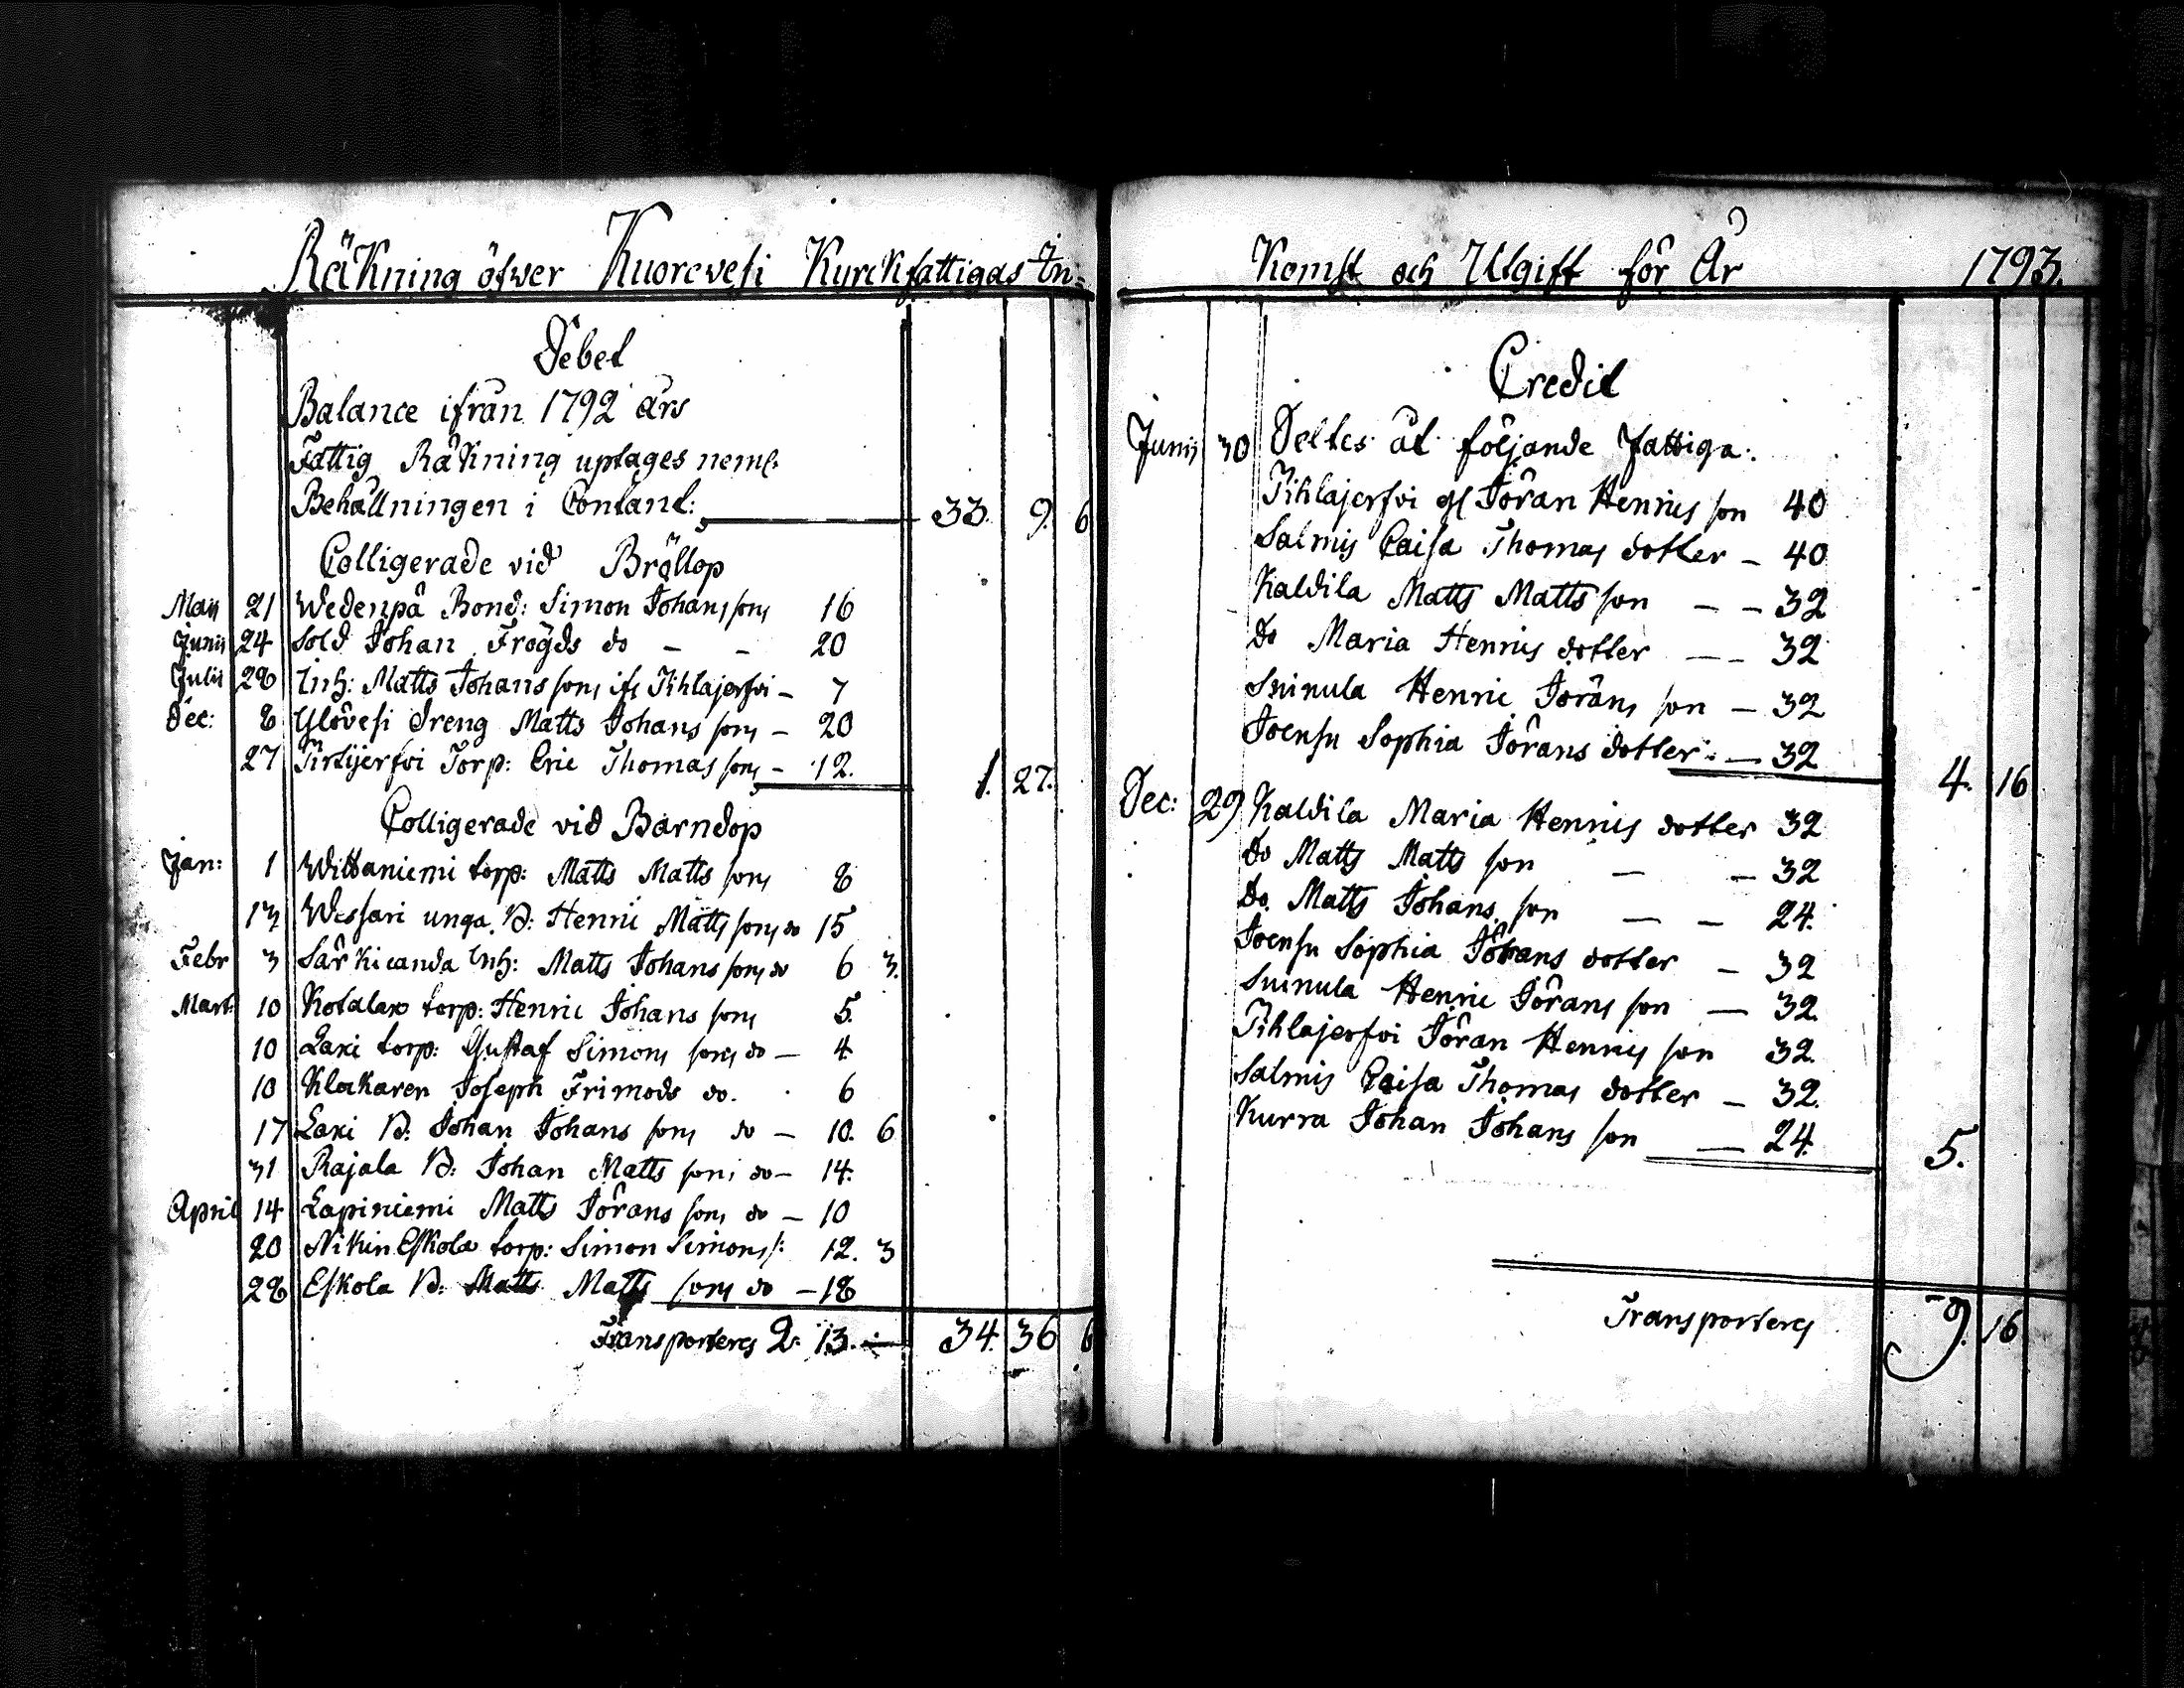 Räkning öfwer Kuorevesi Kyrckfattigas In=
Debet
Balance ifrån 1792 års
Fattig Räkning uptages neml.
Behållningen i Contant: 33. 9. 6
Colligerade vid Bröllop
Maij 21 Wedenpä Bond: Simon Johans sons 16
Junii 24 Sold Johan Fröjds do - - 20
Julii 28 Inh: Matts Johans sons ifr Pihlajerfvi - 7
Dec: 8 Ylövesi Dreng Matts Johans sons - 20
27 Pirttijerfvi Torp: Eric Thomas sons - 12. 1. 27.
Colligerade vid Barndop
Jan: 1 Wittaniemi torp: Matts Matts sons 8
13 Wessari unga B: Henric Matts sons do 15
Febr 3 Särkicanda Inh: Matts Johans sons do 6 3.
Mart: 10 Kotalax torp: Henric Johans sons 5.
10 Laxi torp: Gustaf Simons sons do - 4
10 Klockaren Joseph Frimods do. 6
17 Laxi B: Johan Johans sons do - 10. 6
31 Rajala B: Johan Matts sons do - 14.
April 14 Lapiniemi Matts Jörans sons do - 10
20 Nikin Eskola torp: Simon Simons s: 12. 3
28 Eskola B: Matts Matts sons do - 18
Transporteres 2: 13. - 34. 36 6
Komst och Utgift för År 1793.
Credit
Junij 30 Deltes åt följande Fattiga:
Pihlajerfvi gl Jöran Henrics son 40
Salmis Caisa Thomas dotter - 40
Kaldila Matts Matts son - - 32
do Maria Henrics dotter - - 32
Suinula Henric Jörans son - 32
Joensu Sophia Jörans dotter: - 32 4. 16
Dec: 29 Kaldila Maria Henrics dotter 32
do Matts Matts son - - 32
do. Matts Johans son - - 24.
Joensu Sophia Jörans dotter - 32
Suinula Henric Jörans son - 32.
Pihlajerfvi Jöran Henrics son 32.
Salmis Caisa Thomas dotter - 32.
Kurra Johan Johans son - 24. 5.
Transporteres 9. 16